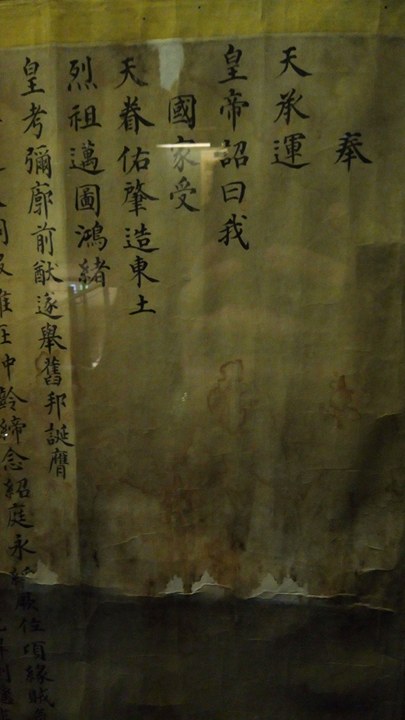 奉
天承運
皇帝詔曰我
國家受
天眷佑肇造東土
烈祖邁圖鴻緒
皇考彌廓前猷遂舉舊邦誕膺
冲齡締念紹庭永綏厥位頃緣賊